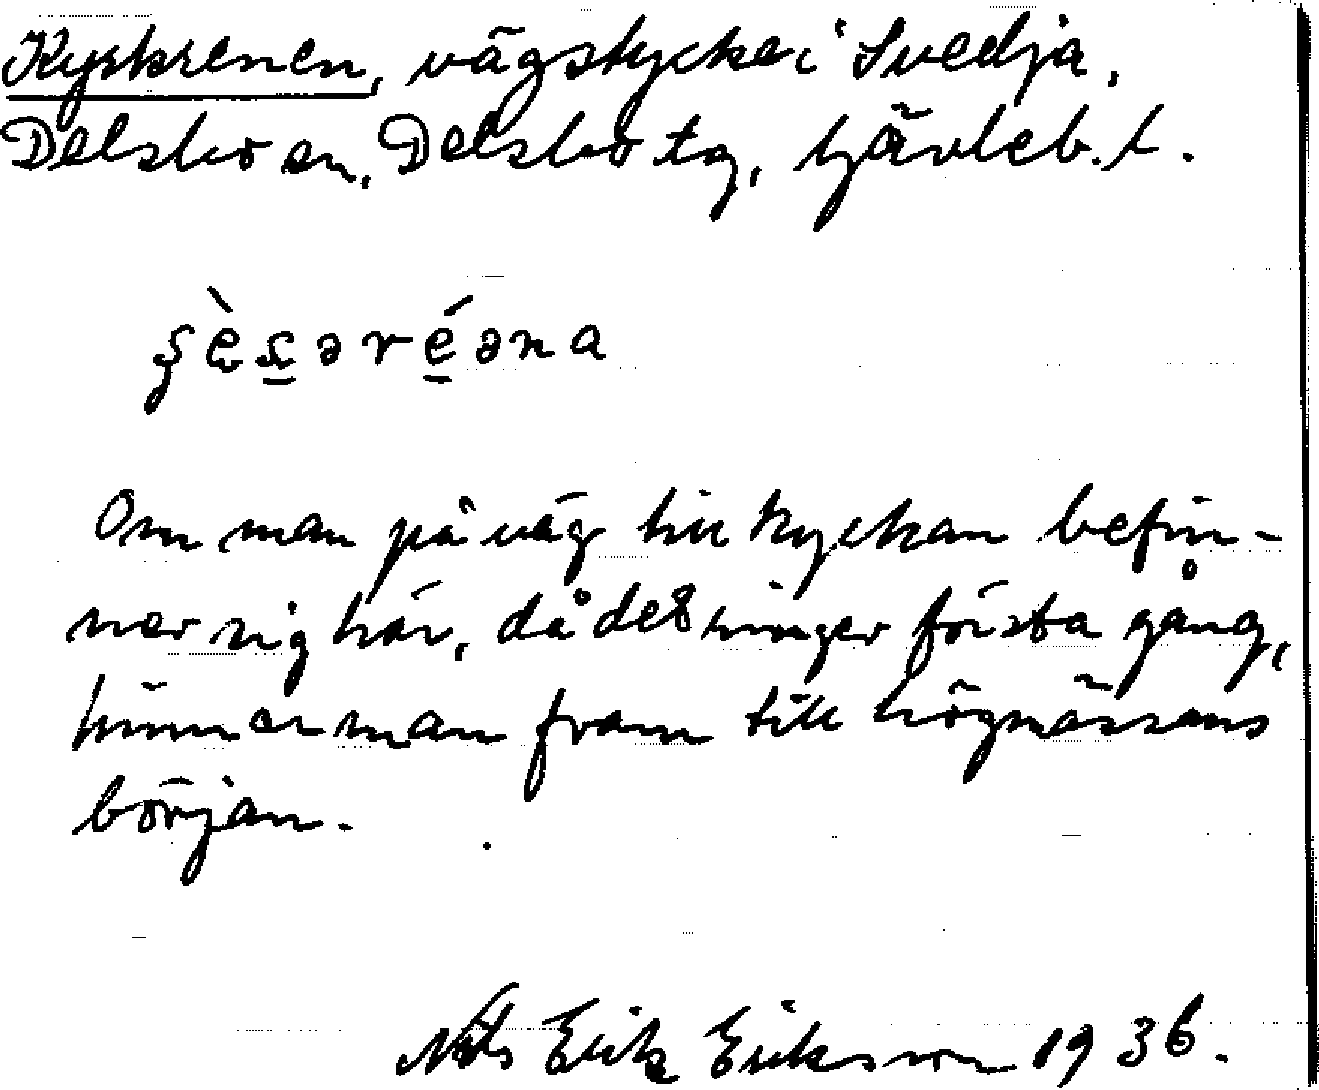 Kyrkrenen, vägstycke i Svedja,
Delsbo sn, Delsbo tg, Gävleb. l.
Om man på väg till kyrkan befin-
ner sig här, då det ringer första gång,
hinner man fram till högmässans
början.
Nils Erik Eriksson 1936.